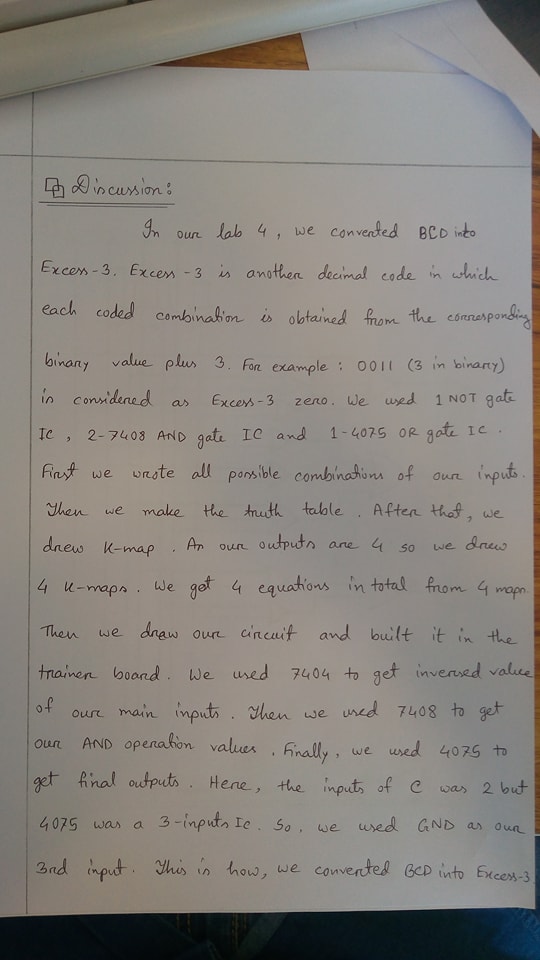 Discussion:
In our lab 4, we converted BCD into
Excess-3. Excess-3 is another decimal code in which
each coded combination is obtained from the corresponding
binary value plus 3. For example: 0011 (3 in binary)
is considered as Excess-3 zero. We used 1 NOT gate
IC, 2-7408 AND gate IC and 1-4075 OR gate IC.
First we wrote all possible combinations of our inputs.
Then we make the truth table. After that, we
drew K-map. As our outputs are 4 so we drew
4 K-maps. We got 4 equations in total from 4 maps.
Then we draw our circuit and built it in the
trainer board. We used 7404 to get inversed value
of our main inputs. Then we used 7408 to get
our AND operation values. Finally, we used 4075 to
get final outputs. Here, the inputs of C was 2 but
4075 was a 3-inputs Ic. So, we used GND as our
3rd input. This is how, we converted BCD into Excess-3.